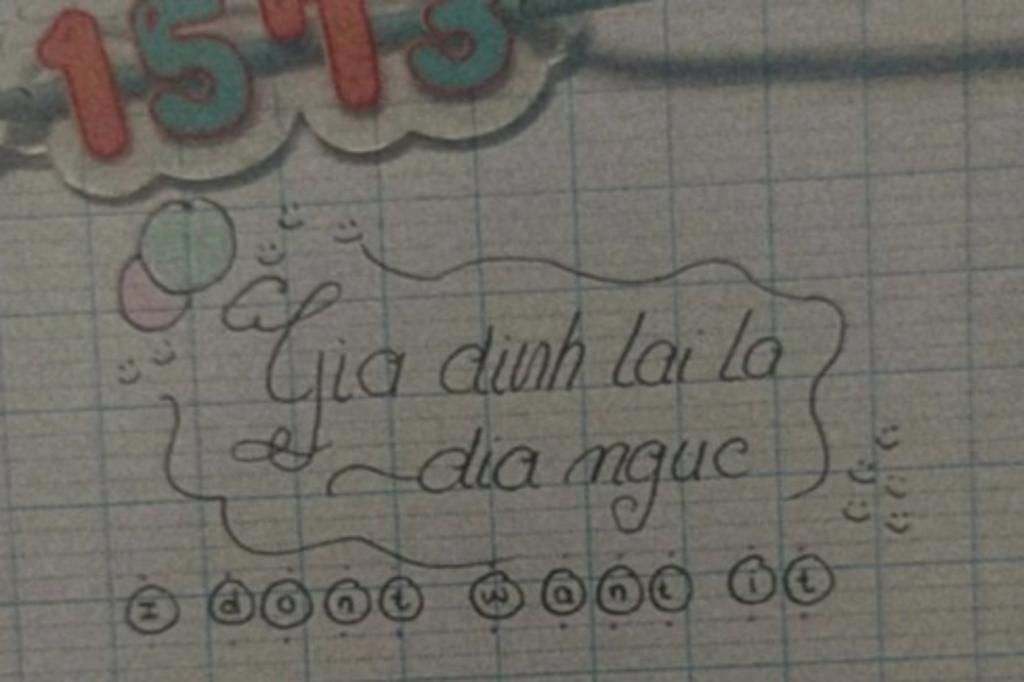 1573
Gia dinh lai la
dia nguc
I dont want it